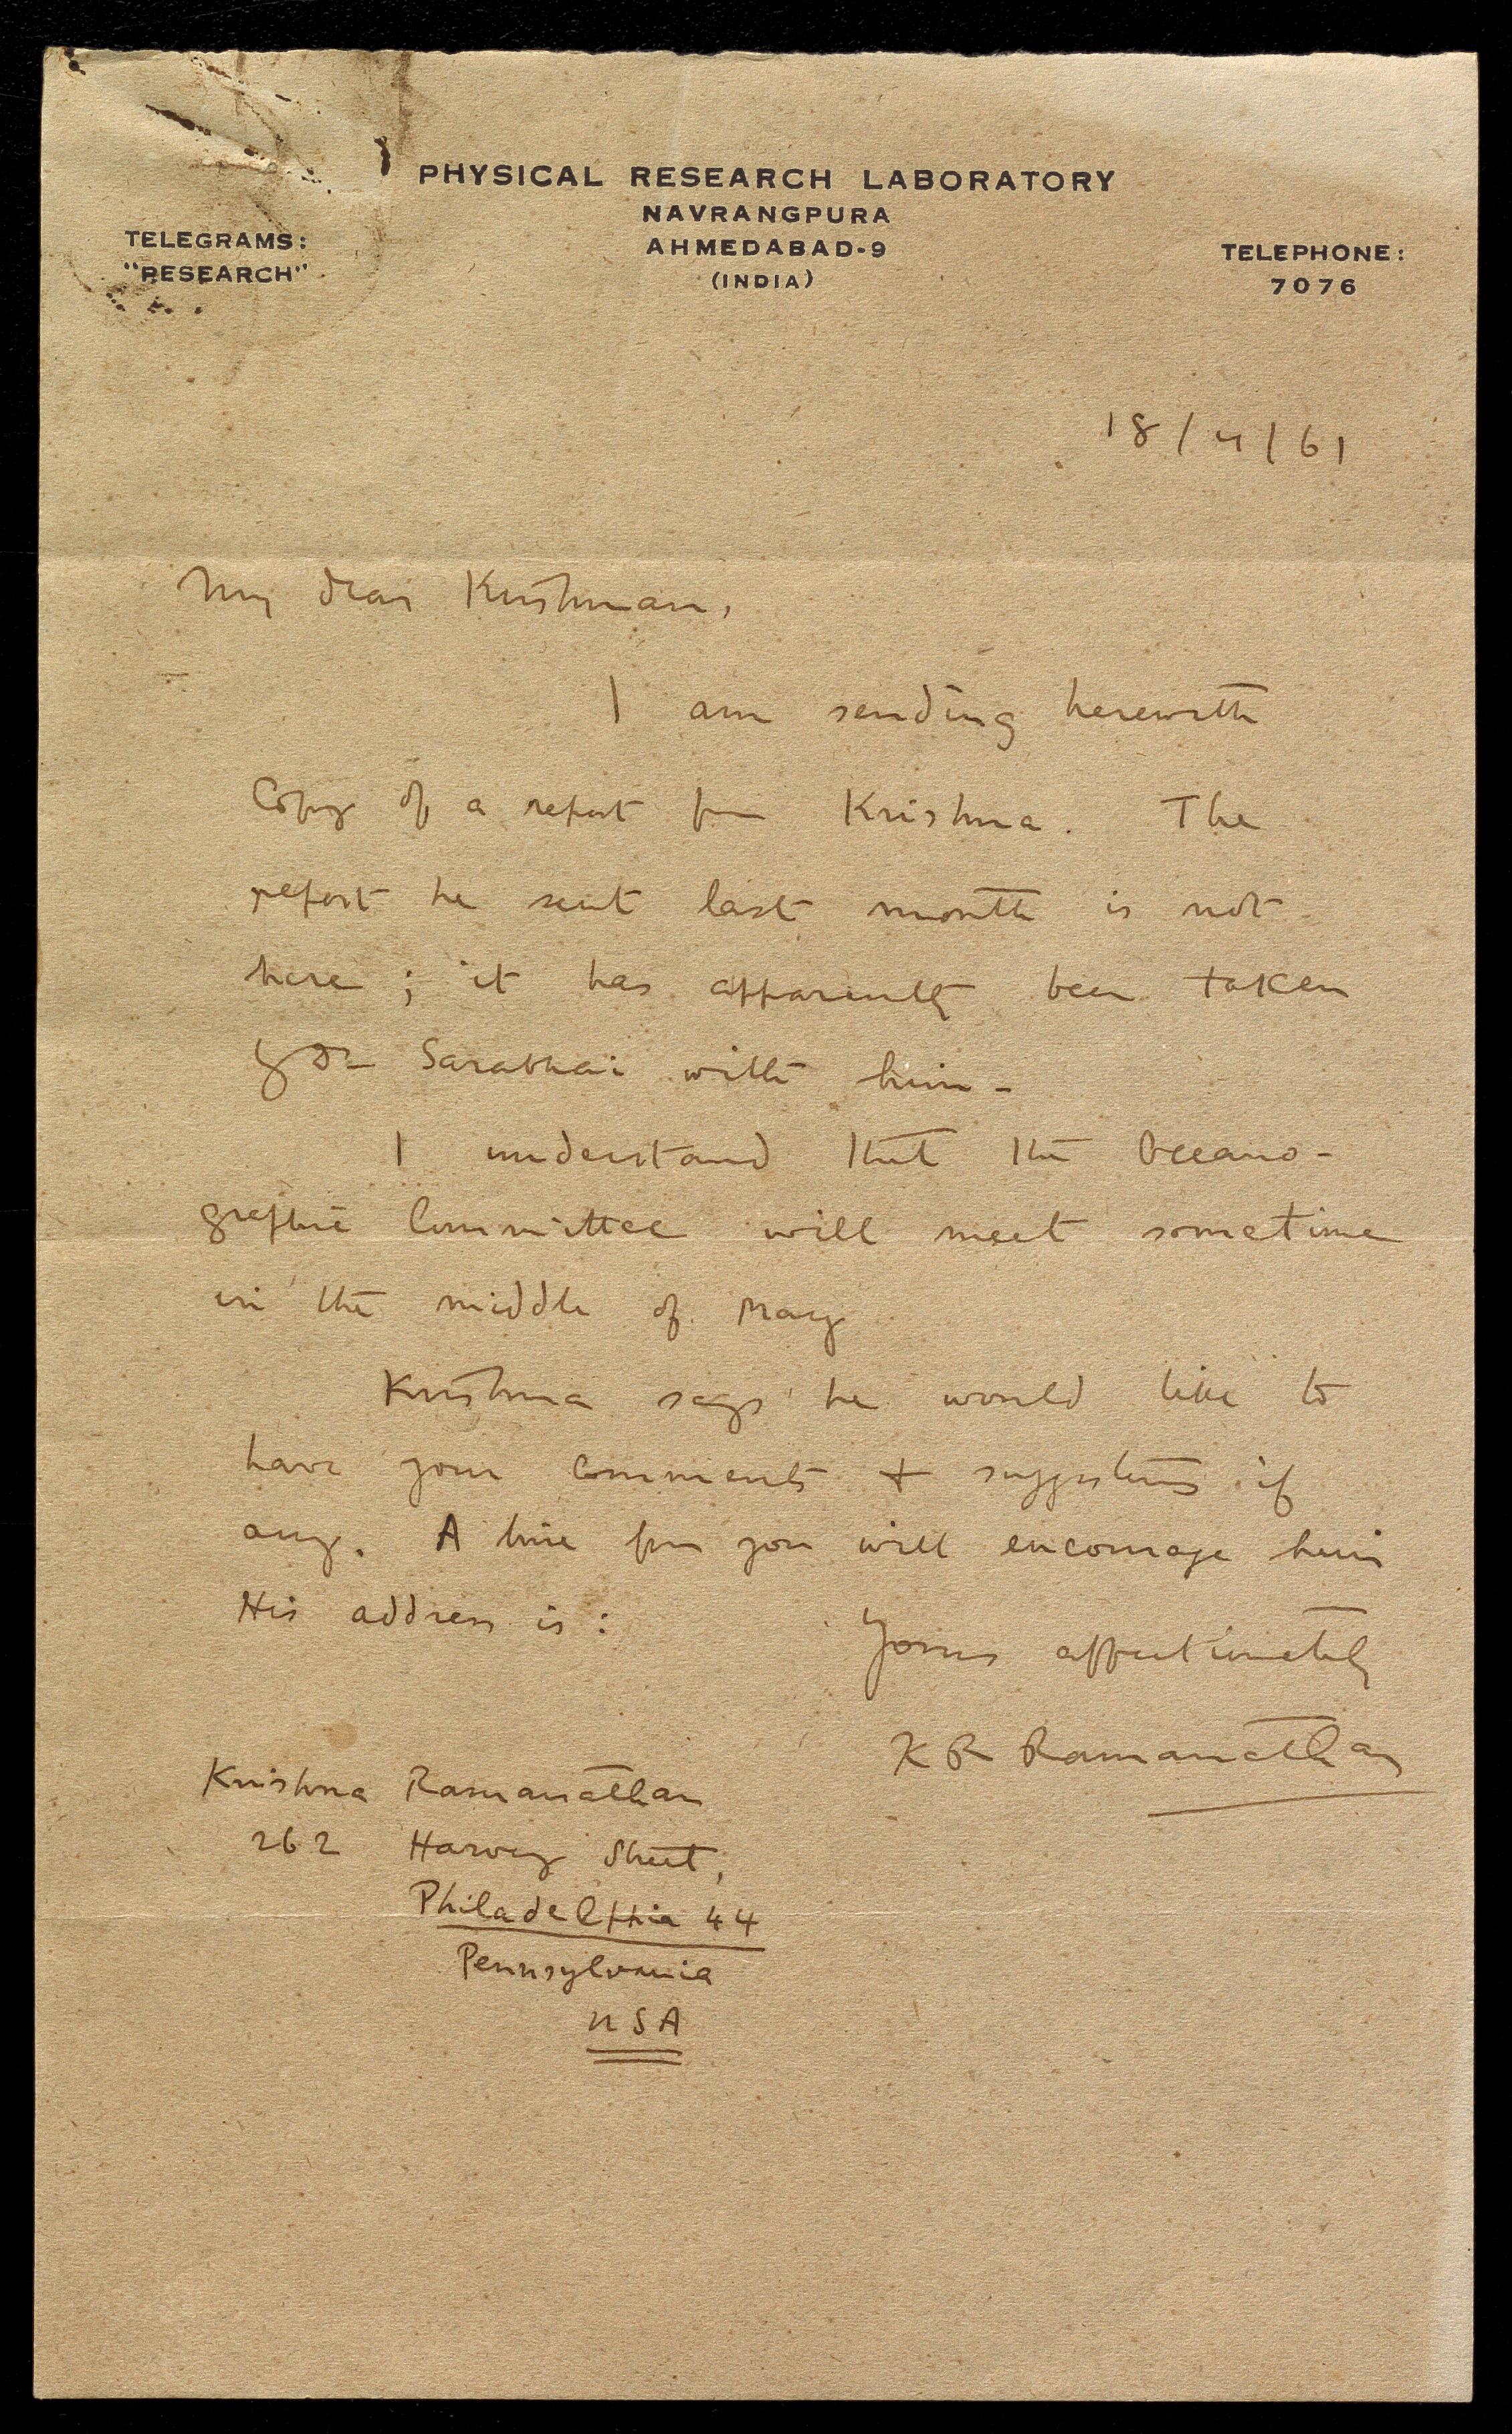 PHYSICAL RESEARCH LABORATORY
NAVRANGPURA
AHMEDABAD-9
(INDIA)
TELEGRAMS:
"RESEARCH"
TELEPHONE:
7076
18/4/61
My dear Krishnan,
I am sending herewith
Copy of a report from Krishna. The
report he sent last month is not
here; it has apparently been taken
by Dr Sarabhai with him-
I understand that the Oceano-
graphic Committee will meet sometime
in the middle of May
Krishna says he would like to
have your comments + suggestions if
any. A line from you will encourage him
His address is:
Yours affectionately
K R Ramanathan
Krishna Ramanathan
262 Harvey Street,
Philadelphia 44
Pennsylvania
USA